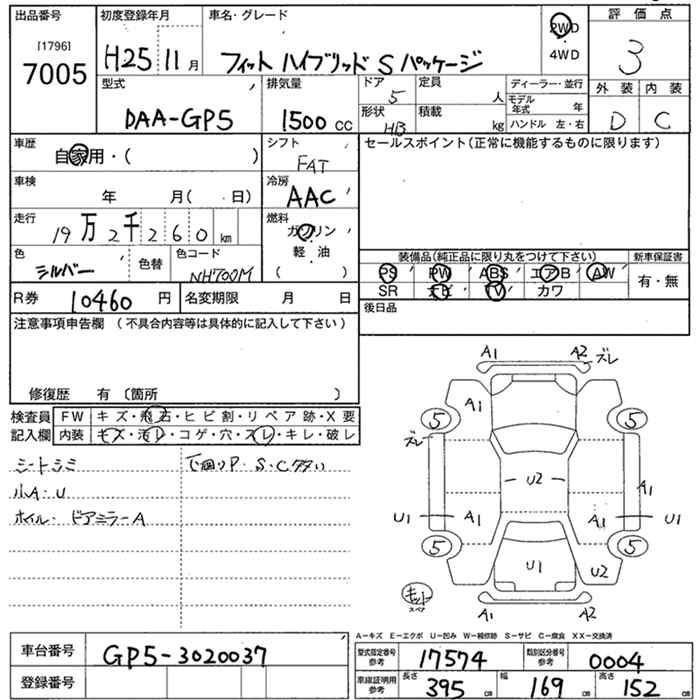 出品番号 初度登録年月 車名・グレード 評価点
[1796]
7005
H25 11月 フィット ハイブリッド Sパッケージ 2WD・4WD 3
型式 排気量 ドア 定員 ディーラー・並行 外装 内装
DAA-GP5 1500cc 5 人 モデル年式 年 D C
形状 積載 ハンドル 左・右
HB kg
車歴 シフト セールスポイント(正常に機能するものに限ります)
自家用・( ) FAT
車検 冷房
年 月( 日) AAC
走行 燃料
19万2千260km ガソリン
軽・油
( )
色 色替 色コード 装備品(純正品に限り丸をつけて下さい) 新車保証書
シルバー NH700M PS PW ABS エアB AW 有・無
SR ナビ TV カワ
R券 10460円 名変期限 月 日 後日品
注意事項申告欄(不具合内容等は具体的に記入して下さい)
修復歴 有〔箇所 〕
検査員 FW キズ・飛石・ヒビ割・リペア跡・X要
記入欄 内装 キズ・汚レ・コゲ・穴・スレ・キレ・破レ
シートシミ 下回りP・S・C
小A・U
ホイル・ドアミラーA
A1 A2 ズレ
A1
5 5
ズレ
U2
A1
U1 A1 A1 U1
5 5
U1 U2
キット
スペア
A1 A2
A-キズ E-エクボ U-凹み W-補修跡 S-サビ C-腐食 XX-交換済
車台番号 GP5-3020037 型式指定番号 参考 17574 類別区分番号 参考 0004
登録番号 車庫証明用 参考 長さ 395cm 幅 169cm 高さ 152cm